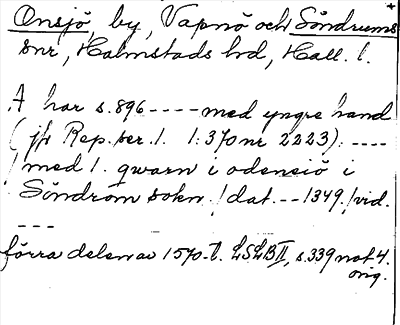 Onsjö, by, Vapnö och Söndrums
snr, Halmstads hd, Hall. l.
A har s. 896 ---- med yngre hand
(jfr Rep. ser. 1. 1: 370 nr 2223): ----
/med 1. qwarn i odensiö i
Söndröm sokn./ dat. -- 1349./ vid.
---
förra delen av 1570-t. LSLB II, s. 339 not 4.
orig.